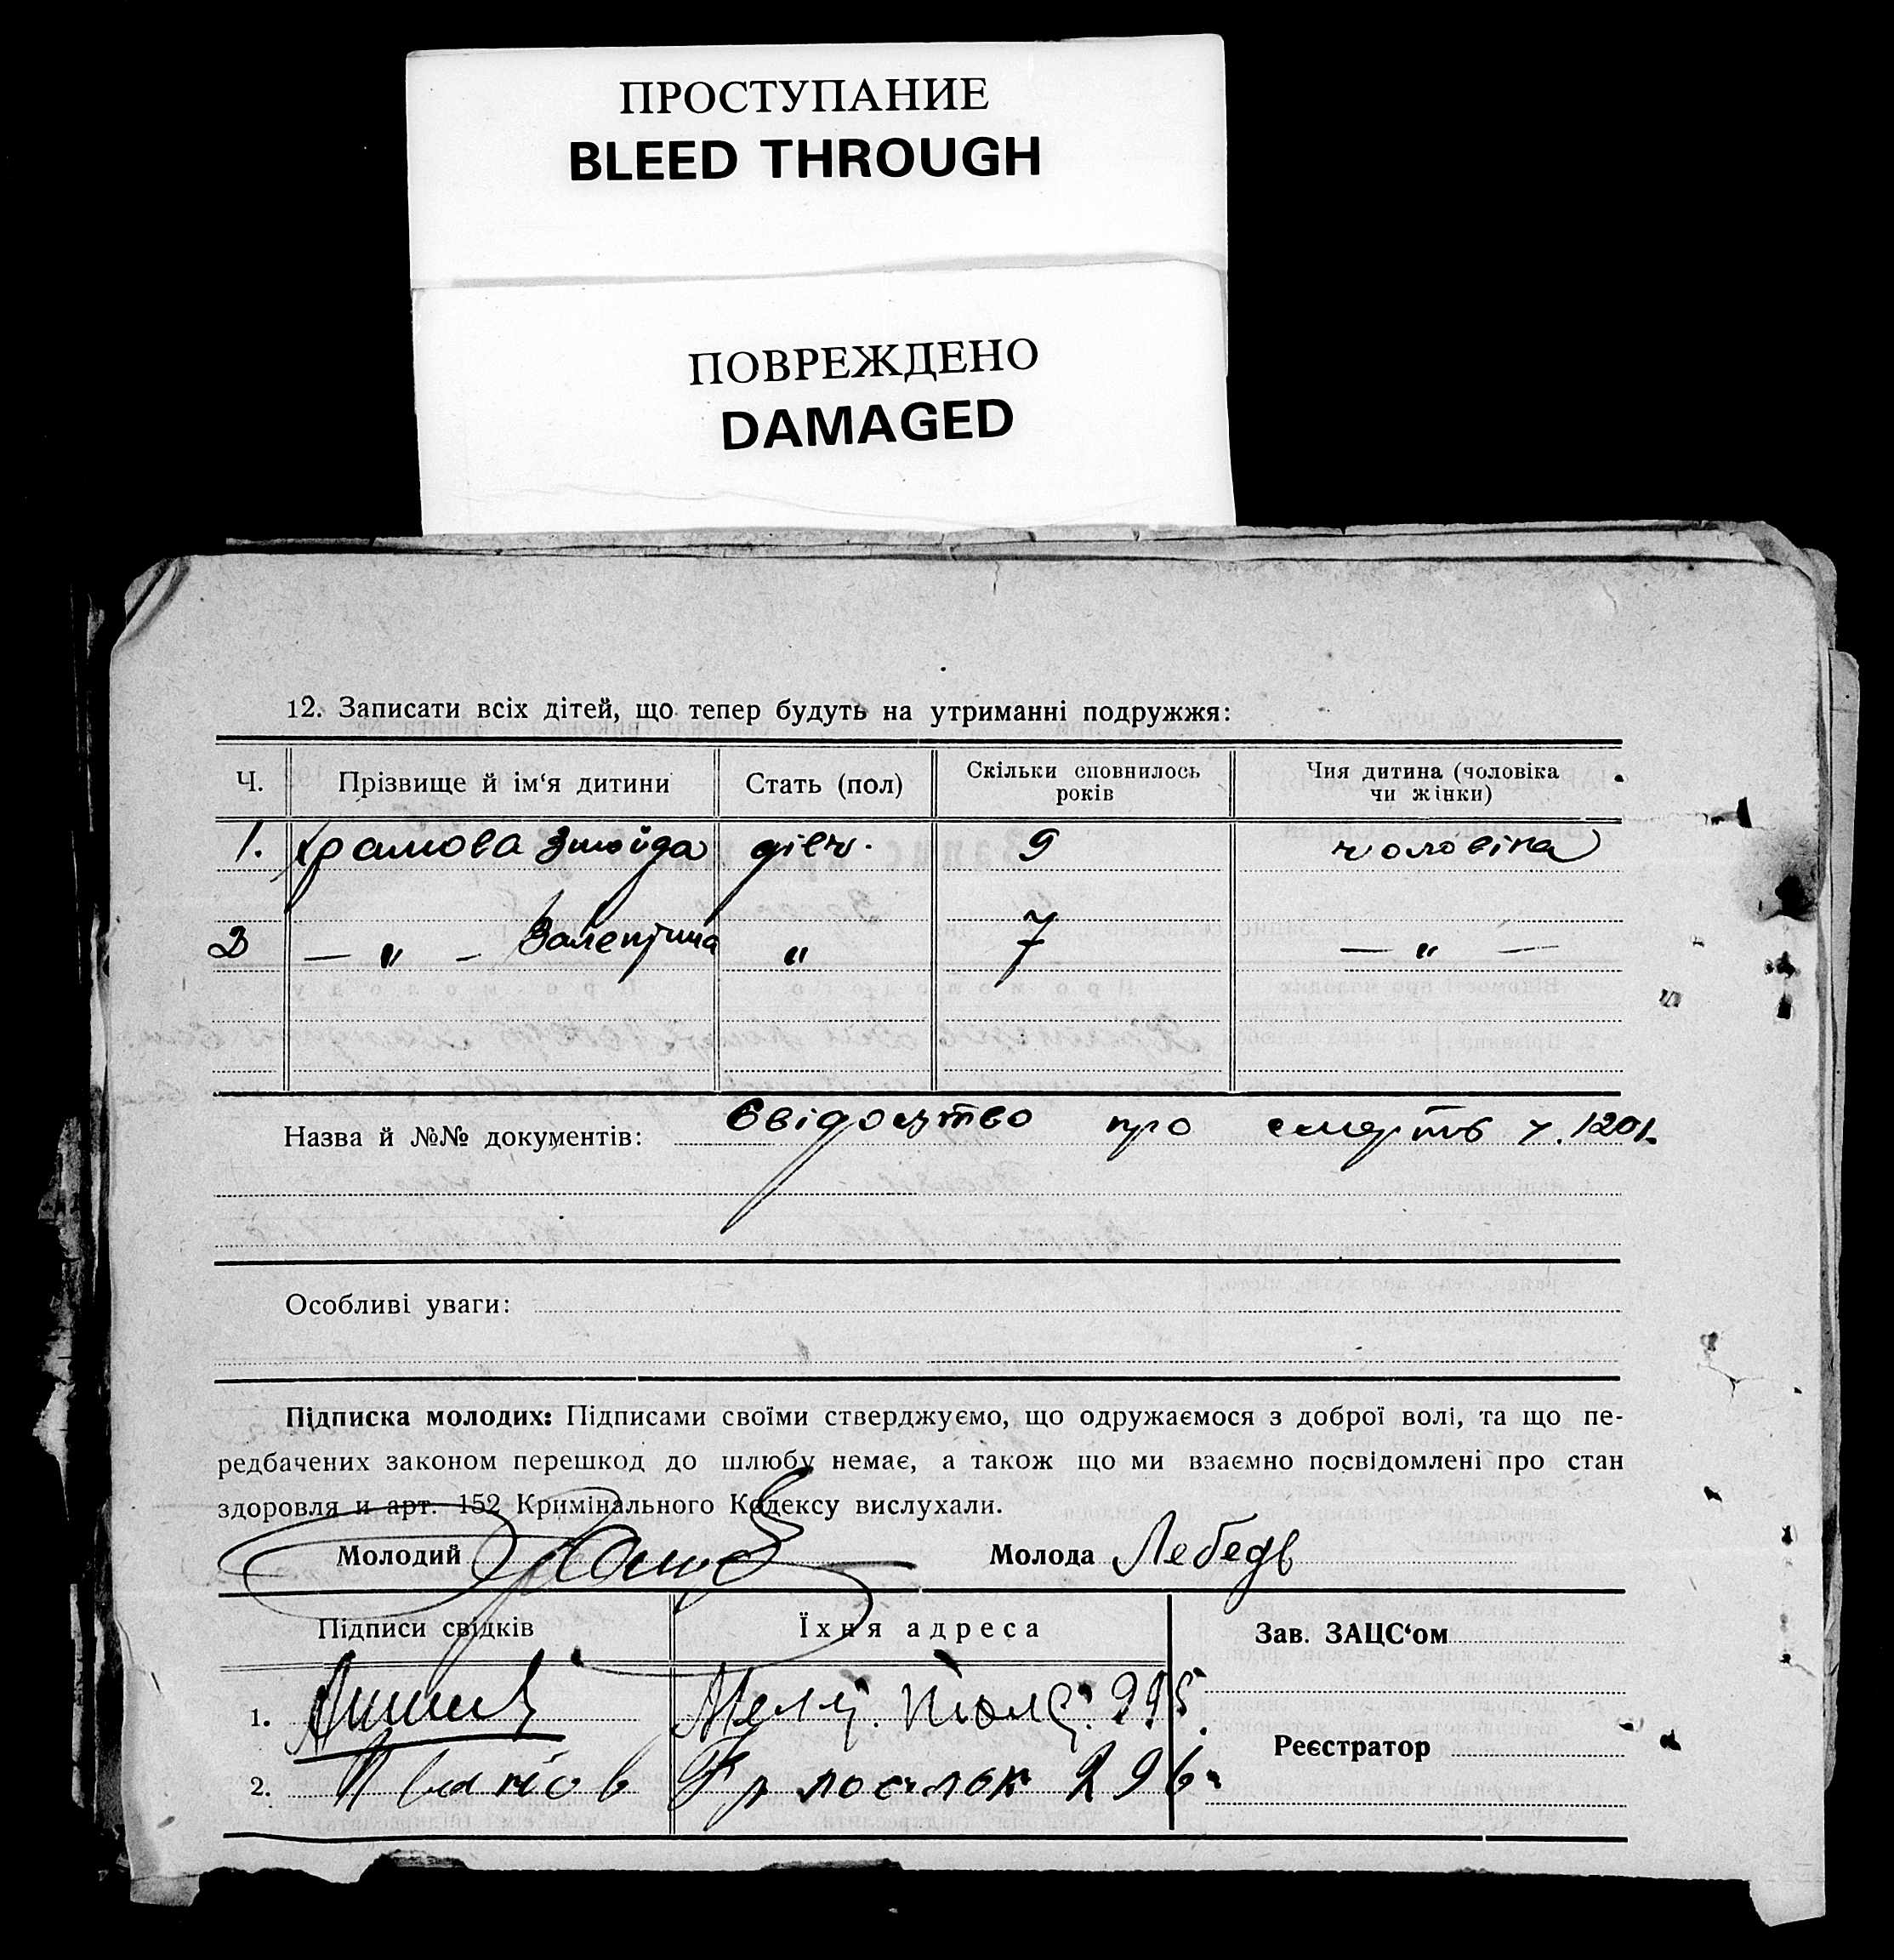 ПРОСТУПАНИЕ
BLEED THROUGH
ПОВРЕЖДЕНО
DAMAGED
12. Записати всіх дітей, що тепер будуть на утриманні подружжя:
Ч. Прізвище й ім‘я дитини Стать (пол) Скільки сповнилось років Чия дитина (чоловіка чи жінки)
1. Храмова дівч. 9 чоловіка
2 — „ — Валентина „ 7 — „ —
Назва й №№ документів: Свідоцтво про смерть ч. 1201.
Особливі уваги:
Підписка молодих: Підписами своїми стверджуємо, що одружаємося з доброї волі, та що пе-
редбачених законом перешкод до шлюбу немає, а також що ми взаємно посвідомлені про стан
здоровля и арт. 152 Кримінального Кодексу вислухали.
Молодий Молода Лебедь
Підписи свідків Їхня адреса Зав. ЗАЦС‘ом
1. 295.
Реєстратор
2. Иванов 296.